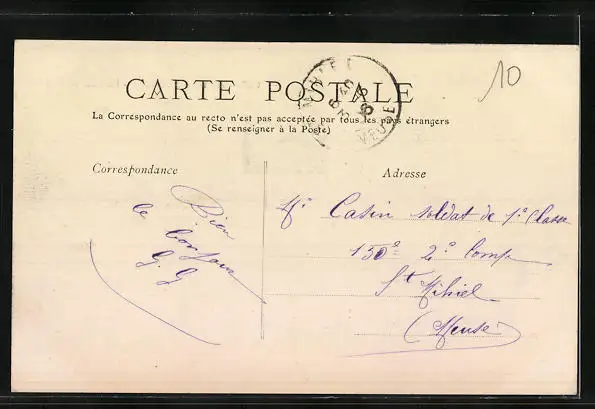 10
CARTE POSTALE
La Correspondance au recto n'est pas acceptée par tous les pays étrangers
(Se renseigner à la Poste)
Correspondance
Adresse
Bien
le bonjour
G. G
Mr Casin soldat de 1e Classe
150e 2e Comp
St Mihiel
(Meuse)
MEUSE